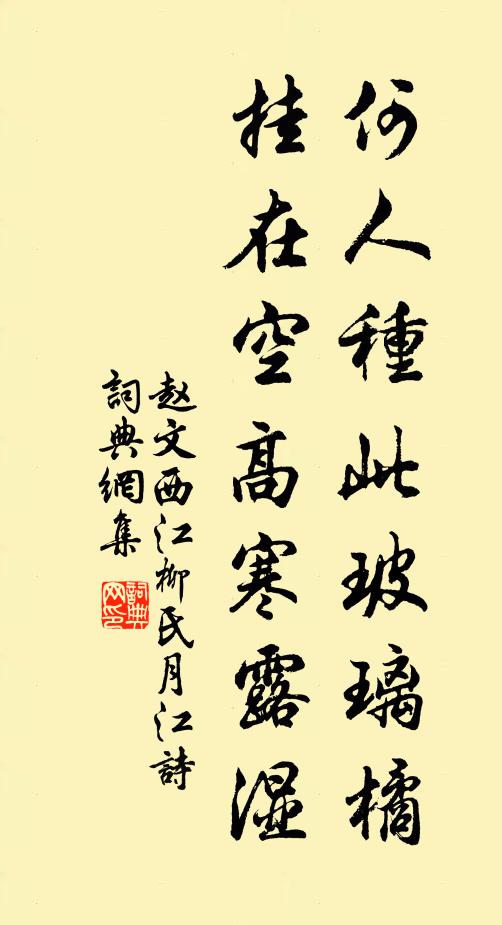 何人種此玻璃橘
挂在空高寒露濕
赵文西江柳氏月江詩
詞典網集
詞典网印